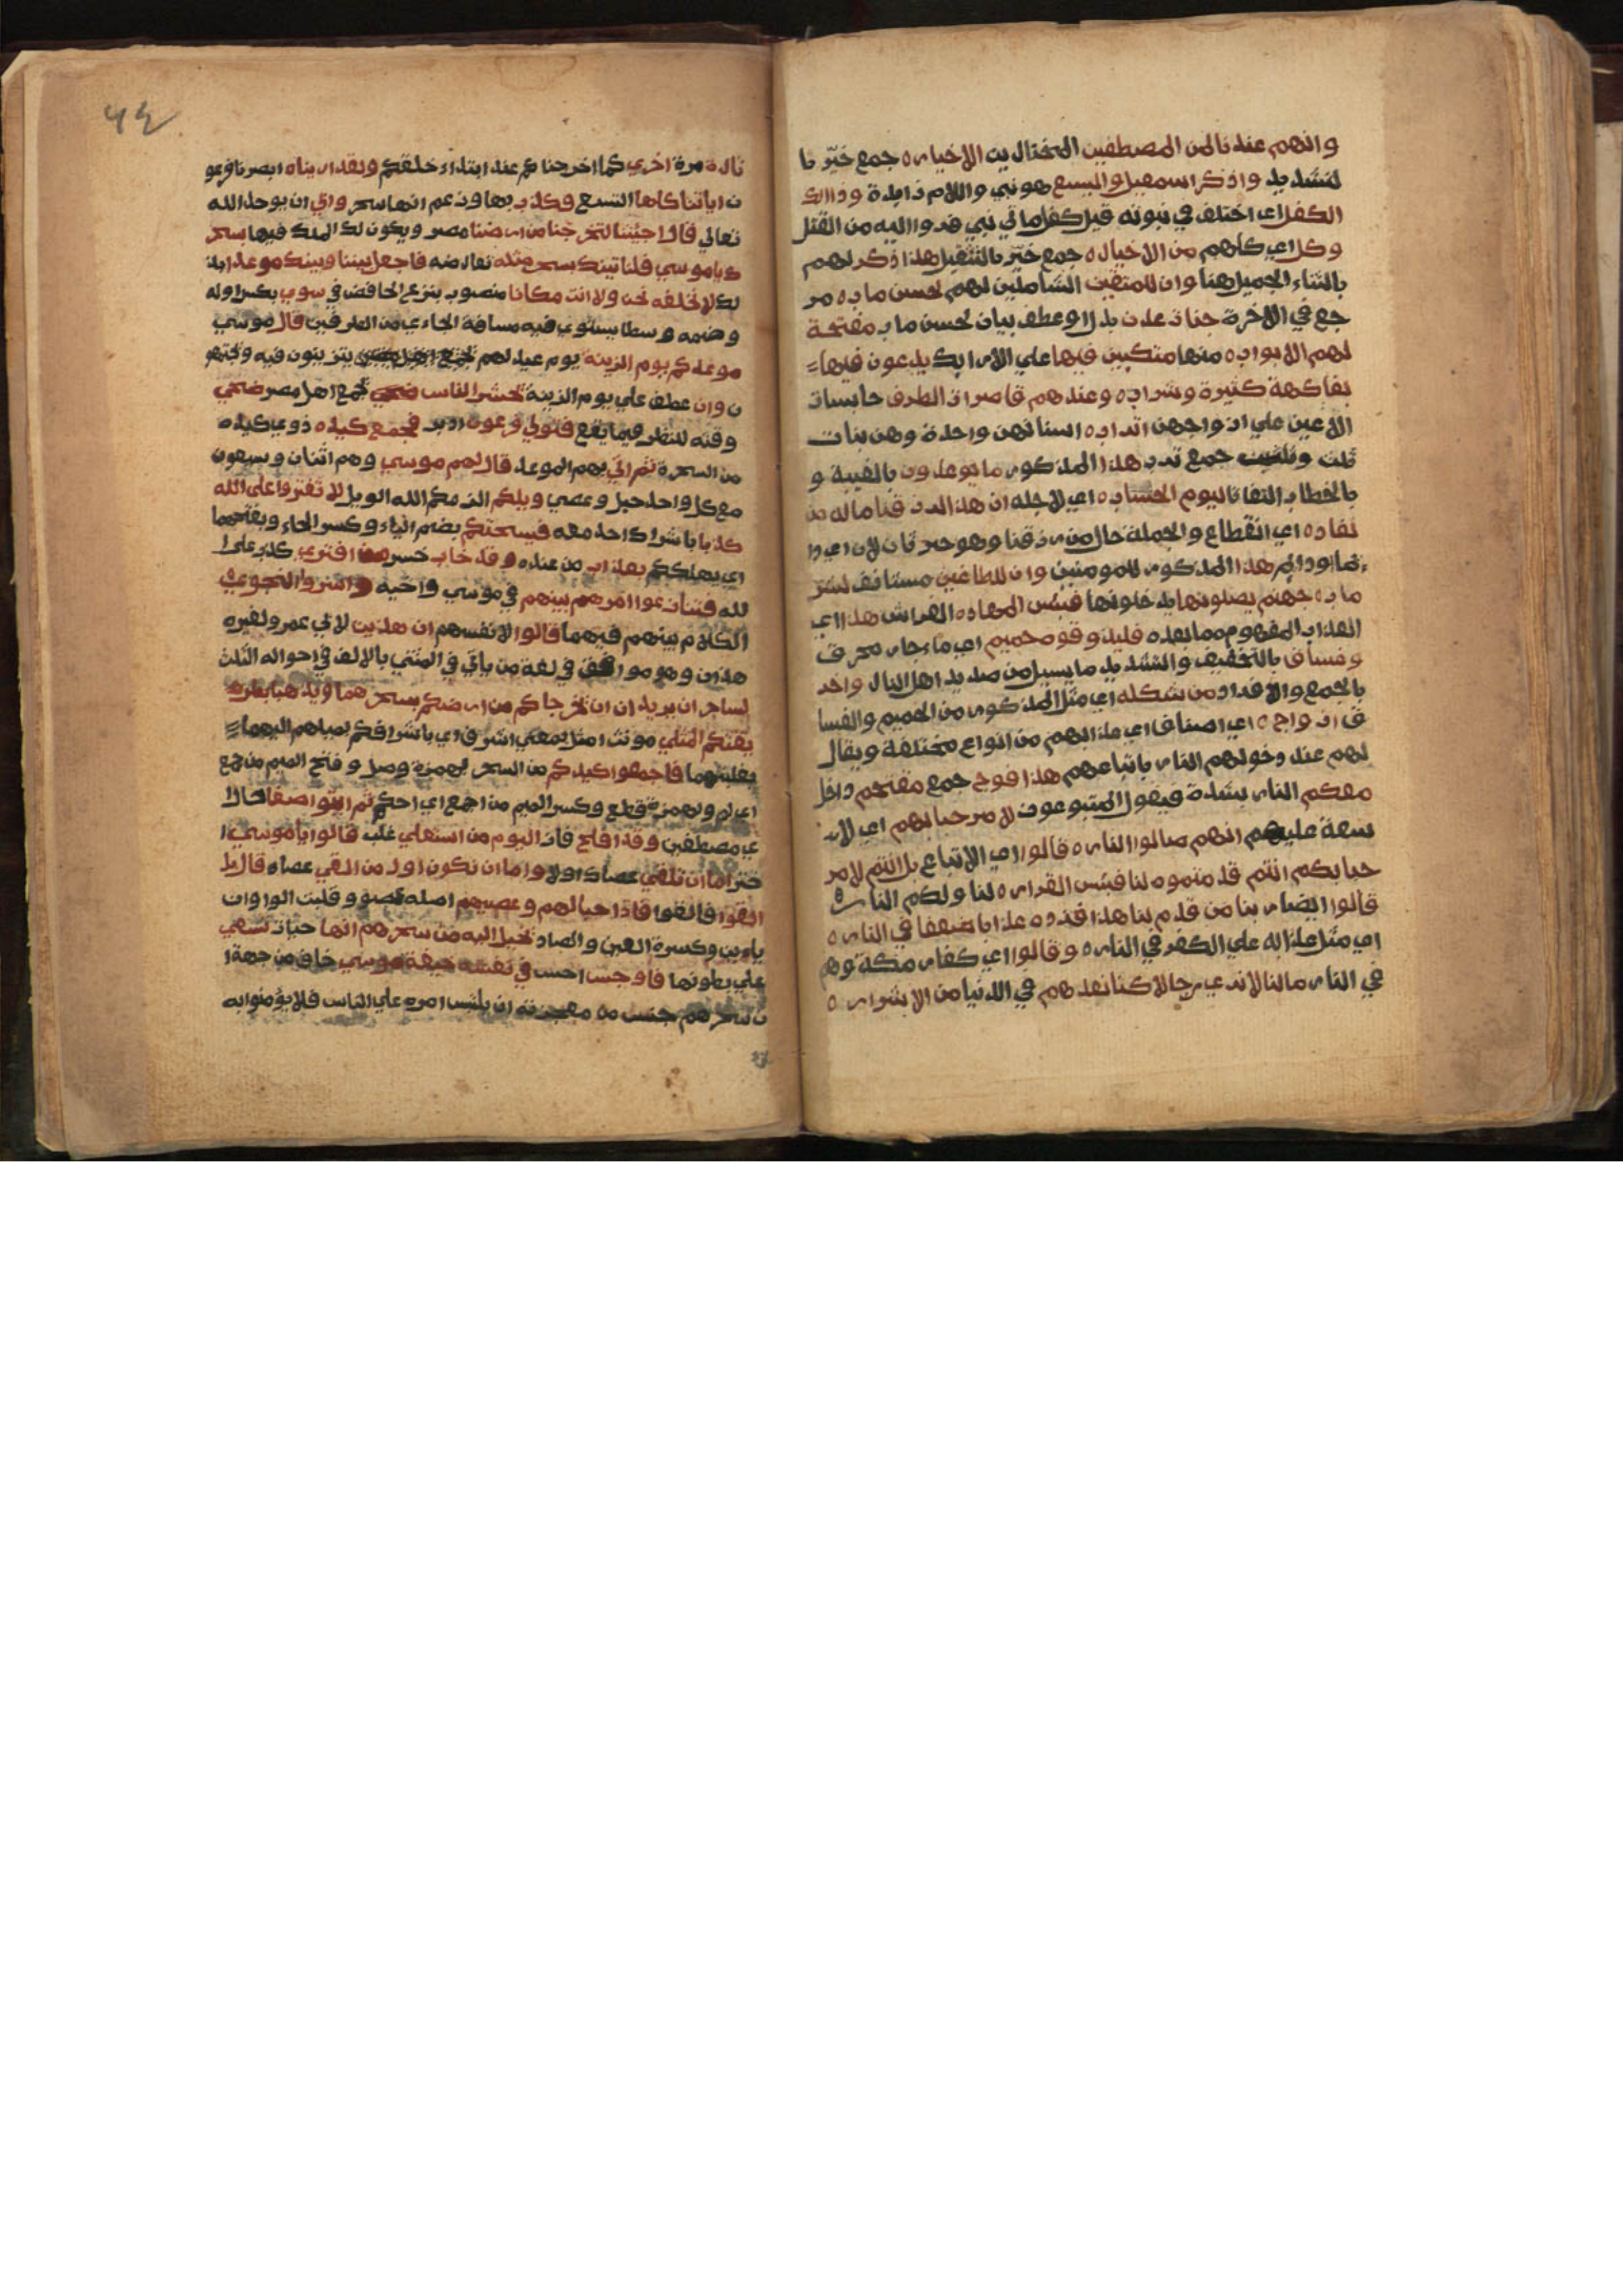 وانهم عندنا لمن المصطفين المختارين الاخيار ه جمع خيّر با
لتشديد واذكر اسمعيل واليسع هو نبي واللام زايدة وذاالك
الكفل اي اختلف في نبوته قيل كفل ماتي نبي فدوا اليه من القتل
وكل اي كلهم من الاخيار ه جمع خيّر بالتثقيل هذا ذكر لهم
بالثناء الجميل هنا وان للمتقين الشاملين لهم لحسن ماب ه مر
جع في الاخرة جنات عدن بدل او عطف بيان لحسن ماب مفتحة
لهم الابواب ه منها متكيين فيها علي الارايك يدعون فيها
بفاكهة كثيرة وشراب ه وعندهم قاصرات الطرف حابسات
الاعين علي ازواجهن اتراب ه اسنانهن واحدة وهن بنات
ثلث وثلثين جمع ترب هذا المذكور ما يوعدون بالغيبة و
بالخطاب التفاتا ليوم الحساب ه اي لاجله ان هذا لرزقنا ماله من
نفاد ه اي انقطاع والجملة حال من رزقنا وهو خبر ثان لان اي دا
يما ودايم هذا المذكور للمومنين وان للطاغين مستانف لشر
ماب ه جهنم يصلونها يدخلونها فبئس المهاد ه الفراش هذا اي
العذاب المفهوم مما بعده فليذوقوه حميم اي ماء حار محرق
وغساق بالتخفيف والتشديد ما يسيل من صديد اهل النار واخر
بالجمع والافراد من شكله اي مثل المذكور من الحميم والغسا
ق ازواج ه اي اصناف اي عذابهم من انواع مختلفة ويقال
لهم عند دخولهم النار باتباعهم هذا فوج جمع مقتحم داخل
معكم النار بشدة فيقول المتبوعون لا مرحبا بهم اي لا
سعة عليهم انهم صالوا النار ه قالوا اي الاتباع بل انتم لا مر
حبا بكم انتم قدمتموه لنا فبئس القرار ه لنا ولكم النار ه
قالوا ايضا ربنا من قدم لنا هذا فزده عذابا ضعفا في النار ه
اي مثل عذابه علي الكفر في النار ه وقالوا اي كفار مكة وهم
في النار ما لنا لا نري رجالا كنا نعدهم في الدنيا من الاشرار ه
٦٤
تارة مرة اخري كما اخرجناكم عند ابتداء خلقكم ولقد اريناه ابصرنا فرعو
ن اياتنا كلها التسع فكذب بها وزعم انها سحر وابي ان يوحد الله
تعالي قال اجئتنا لتخرجنا من ارضنا مصر ويكون لك الملك فيها بسحر
ك ياموسي فلناتينك بسحر مثله نعارضه فاجعل بيننا وبينك موعدا لذ
لك لا نخلفه نحن ولا انت مكانا منصوب بنزع الخافض في سوي بكسر اوله
وضمه وسطا يستوي فيه مسافة الجاءي من الطرفين قال موسي
موعدكم يوم الزينة يوم عيد لهم يتزينون فيه ويجتمعو
ن وان عطف علي يوم الزينة تحشر الناس يجمع اهل مصر ضحي
وقته للنظر فيما يقع فتولي فرعون ادبر فجمع كيده ذوي كيده
من السحرة ثم اتي بهم الموعد قال لهم موسي وهم اثنان وسبعون
مع كل واحد حبل وعصي ويلكم الزمكم الله الويل لا تفتروا علي الله
كذبا باشراك احد معه فيسحتكم بضم الياء وكسر الحاء وبفتحهما
اي يهلككم بعذاب من عنده وقد خاب خسر من افتري كذب علي ا
لله فتنازعوا امرهم بينهم في موسي واخيه واسروا النجوي
الكلام بينهم فيهما قالوا لانفسهم ان هذين لابي عمر ولغيره
هذان وهو موافق في لغة من ياتي في المثني بالالف في احواله الثلث
لساحران يريدان ان يخرجاكم من ارضكم بسحرهما ويذهبا بطر
يقتكم المثلي مونث امثل بمعني اشرف اي باشرافكم بميلهم اليهما
بغلبتهما فاجمعوا كيدكم من السحر بهمزة وصل وفتح الميم من جمع
اي لم وبهمزة قطع وكسر الميم من اجمع اي احكم ثم ايتوا صفا حال ا
ي مصطفين وقد افلح فاز اليوم من استعلي غلب قالوا ياموسي ا
ختر اما ان تلقي عصاك اولا واما ان نكون اول من القي عصاه قال بل
القوا فالقوا فاذا حبالهم وعصيهم اصله عصوو قلبت الواوان
ياءين وكسرة العين والصاد تخيل اليه من سحرهم انها حيات تسعي
علي بطونها فاوجس احس في نفسه خيفة موسي خاف من جهة ا
ن سحرهم جنس من معجزته ان يلتبس امره علي الناس فلا يؤمنوا به